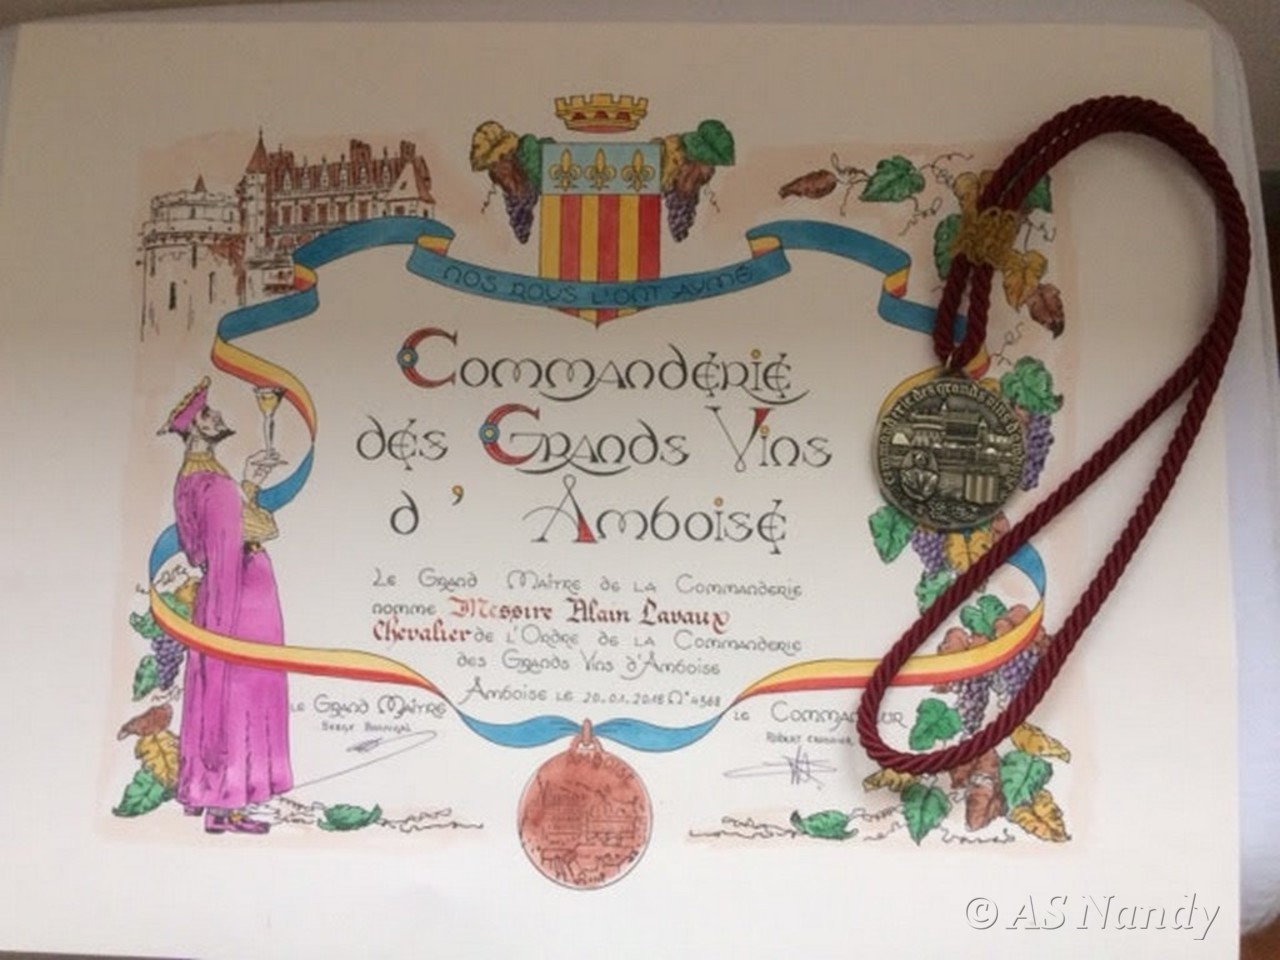 NOS ROYS L'ONT AYMÉ
Commanderie
des Grands Vins
d' Amboise
Commanderie des grands vins d'amboise
Le Grand Maître de la Commanderie
nomme Messire Alain Lavaux
Chevalier de l'Ordre de la Commanderie
des Grands Vins d'Amboise
Amboise le 20.01.2018 N° 4368
Le Grand Maître
Serge
Le Commandeur
Robert
AMBOISE
© AS Nandy